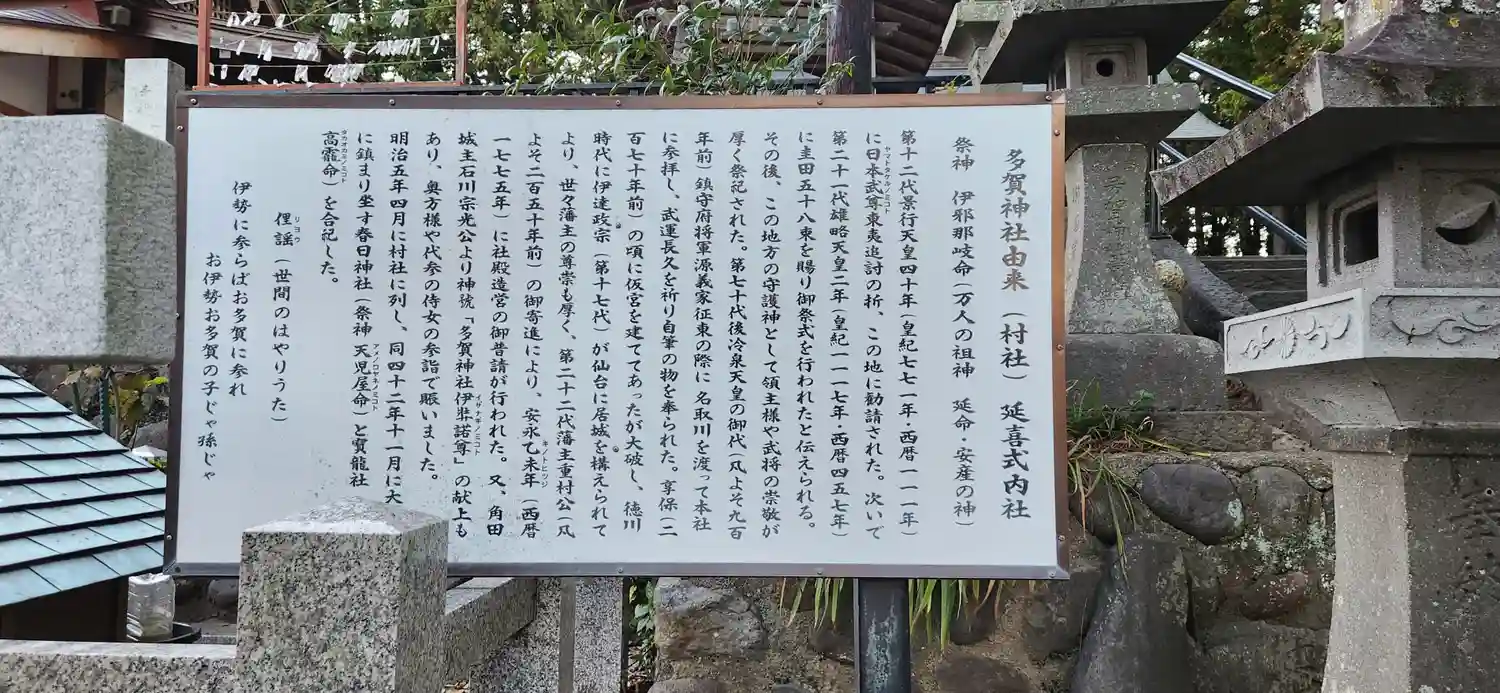 多賀神社由来（村社）延喜式内社
祭神　伊邪那岐命（万人の祖神　延命・安産の神）
第十二代景行天皇四十年（皇紀七七一年・西暦一一一年）
に日本武尊東夷追討の折、この地に勧請された。次いで
ヤマトタケルノミコト
第二十一代雄略天皇二年（皇紀一一一七年・西暦四五七年）
に圭田五十八束を賜り御祭式を行われたと伝えられる。
その後、この地方の守護神として領主様や武将の崇敬が
厚く祭祀された。第七十代後冷泉天皇の御代（凡よそ九百
年前）鎮守府将軍源義家征東の際に名取川を渡って本社
に参拝し、武運長久を祈り自筆の物を奉られた。享保（二
百七十年前）の頃に仮宮を建ててあったが大破し、徳川
時代に伊達政宗（第十七代）が仙台に居城を構えられて
より、世々藩主の尊崇も厚く、第二十二代藩主重村公（凡
よそ二百五十年前）の御寄進により、安永乙未年（西暦
キノトヒツジ
一七七五年）に社殿造営の御普請が行われた。又、角田
城主石川宗光公より神號「多賀神社伊弉諾尊」の献上も
イザナギノミコト
あり、奥方様や代参の侍女の参詣で賑いました。
明治五年四月に村社に列し、同四十二年十一月に大
に鎮まり坐す春日神社（祭神 天児屋命）と寶龍社
アメノコヤネノミコト
高龗命）を合祀した。
タカオカミノミコト
俚謡（世間のはやりうた）
リヨウ
伊勢に参らばお多賀に参れ
お伊勢お多賀の子じゃ孫じゃ